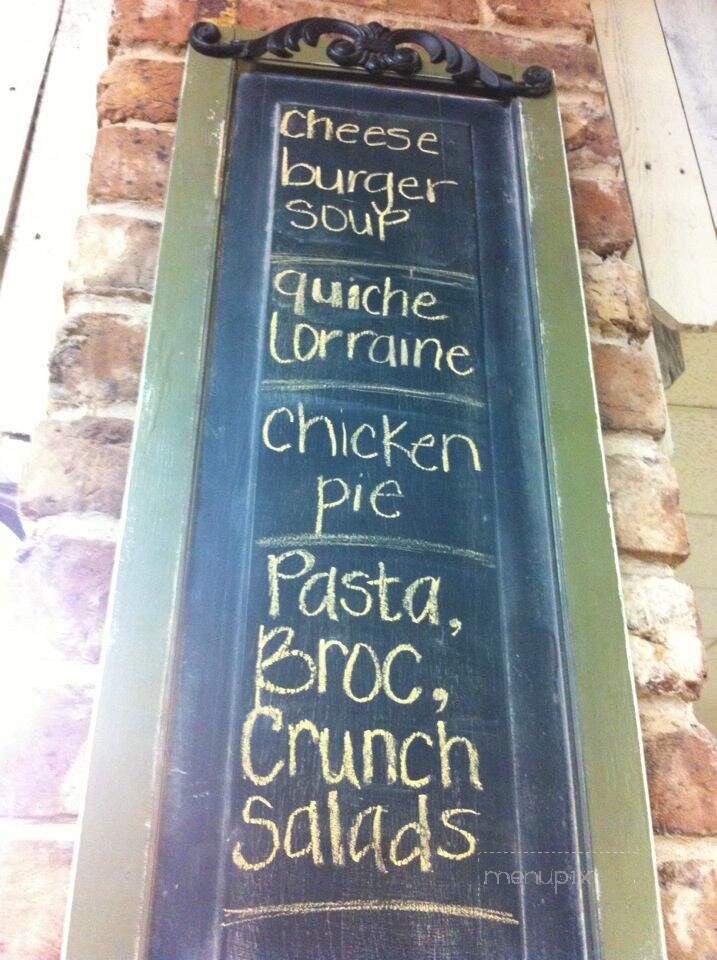 cheese
burger
soup
quiche
lorraine
chicken
pie
Pasta,
Broc,
Crunch
Salads
menupix